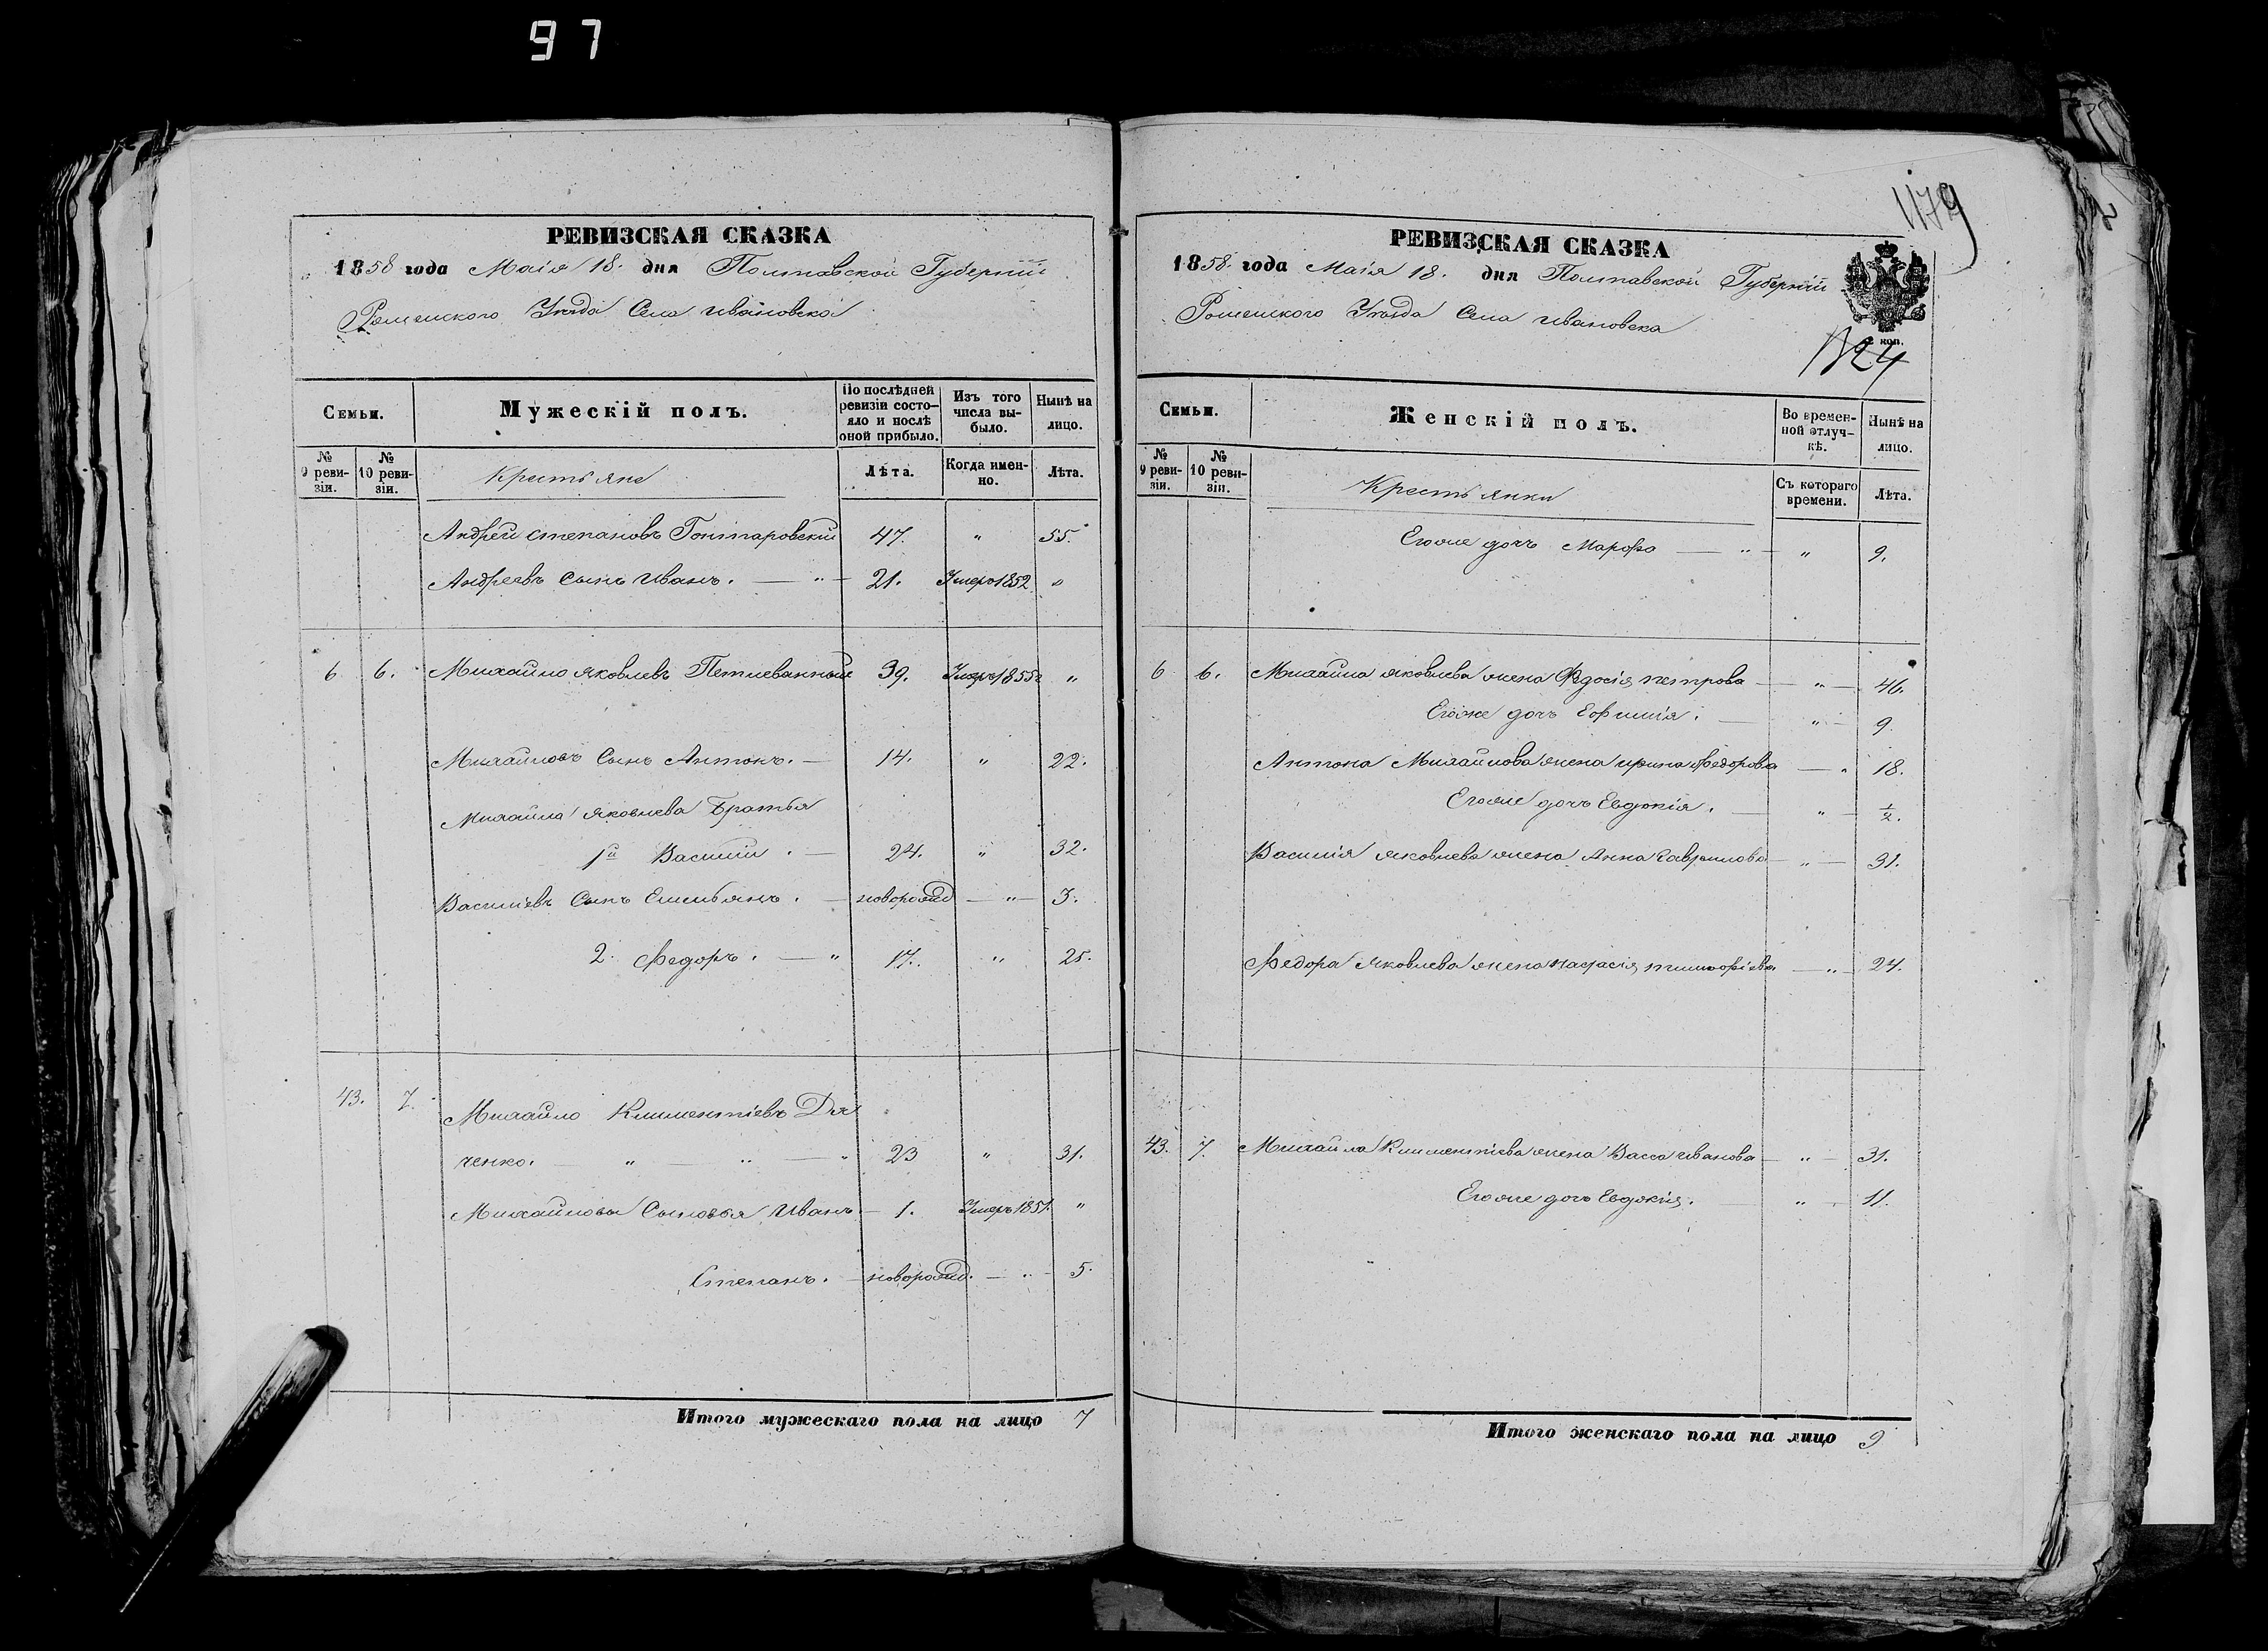 97
РЕВИЗСКАЯ СКАЗКА
1858 года Маія 18. дня Полтавской Губерніи
Роменского Уезда Села Ивановска
Семьи.
Мужескій полъ.
По послѣдней ревизіи состо-
яло и послѣ
оной прибыло.
Изъ того
числа вы-
было.
Нынѣ на
лицо.
№
9 реви-
зіи.
№
10 реви-
зіи.
Крестьяне
Лѣта.
Когда имен-
но.
Лѣта.
Андрей Степановъ Гонтаровскій 47. " 55.
Андреевъ Сынъ Иванъ. — " — 21. Умеръ 1852 "
6 6. Михайло Яковлевъ Петлеванный 39. Умеръ 1855г "
Михайловъ Сынъ Антонъ. — 14. " 22.
Михайла Яковлева Братья
1й Василій . — 24. " 32.
Василіевъ Сынъ Емельянъ . — новорожд — " — 3.
2. Федоръ . — " 17. " 25.
43. 7. Михайло Климентіевъ Дя
ченко. — " — " — " 23 " 31.
Михайловы Сыновья Иванъ — 1. Умеръ 1851. "
Степанъ. — новорожд. — " — 5.
Итого мужескаго пола на лицо 7
1179
РЕВИЗСКАЯ СКАЗКА
1858 года Маія 18. дня Полтавской Губерніи
Роменского Уезда Села Ивановска
коп.
Семьи.
Женскій полъ.
Во времен-
ной отлуч-
кѣ.
Нынѣ на
лицо.
№
9 реви-
зіи.
№
10 реви-
зіи.
Крестьянки
Съ котораго
времени.
Лѣта.
Егоже дочь Марфа — " — " 9.
6 6. Михайла Яковлева жена Федосія Петрова — " — 46.
Егоже дочь Ефимія. — " — 9.
Антона Михайлова жена Ирина Федорова — " 18.
Егоже дочь Евдокія. — " — 1/2.
Василія Яковлева жена Анна Гаврилова — " — 31.
Федора Яковлева жена Настасія Тимофіева — " — 24.
43. 7. Михайла Климентіева жена Васса Иванова — " — 31.
Егоже дочь Евдокія. " — 11.
Итого женскаго пола на лицо 9